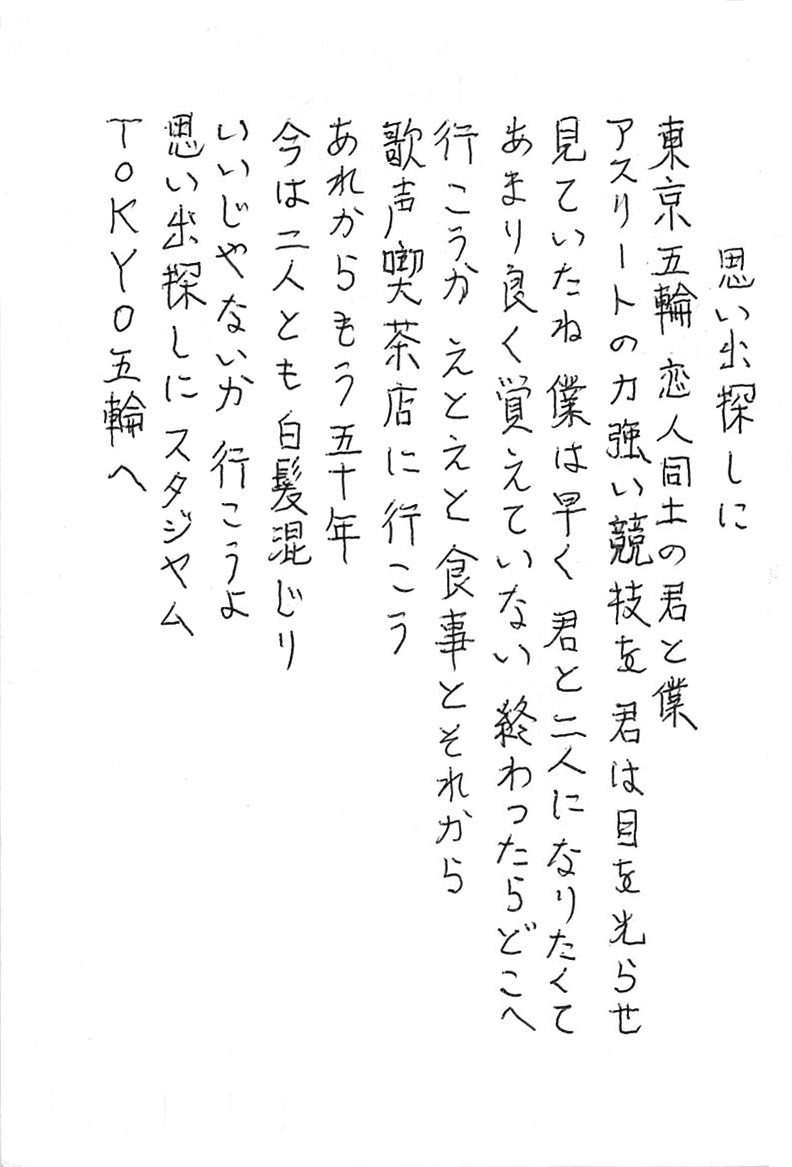 思い出探しに
東京五輪 恋人同士の君と僕
アスリートの力強い競技を 君は目を光らせ
見ていたね 僕は早く 君と二人になりたくて
あまり良く覚えていない 終わったらどこへ
行こうか えとえと 食事とそれから
歌声喫茶店に行こう
あれからもう五十年
今は二人とも白髪混じり
いいじゃないか 行こうよ
思い出探しにスタジヤム
TOKYO五輪へ